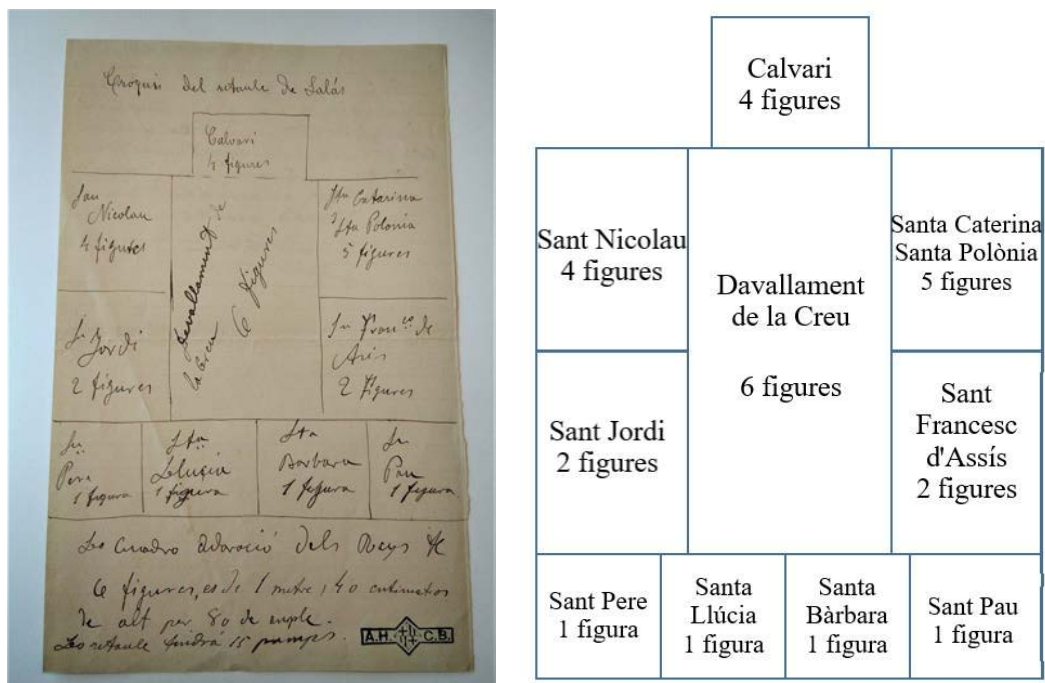 Croquis del retaule de Salás
Calvari
4 figures
San
Nicolau
4 figures
Devallament de
la Creu
6 figures
Sta Catarina
Sta Polonia
5 figures
Sn
Jordi
2 figures
Sn Franco de
Asis
2 figures
Sn
Pere
1 figura
Sta
Llucia
1 figura
Sta
Barbara
1 figura
Sn
Pau
1 figura
Lo Cuadro adoració dels Reys
6 figures, es de 1 metre, 40 centimetros
de alt per 80 de ample.
Lo retaule tindrá 15 pamps.
A.H. C.B.
Calvari
4 figures
Sant Nicolau
4 figures
Davallament
de la Creu
6 figures
Santa Caterina
Santa Polònia
5 figures
Sant Jordi
2 figures
Sant
Francesc
d'Assís
2 figures
Sant Pere
1 figura
Santa
Llúcia
1 figura
Santa
Bàrbara
1 figura
Sant Pau
1 figura